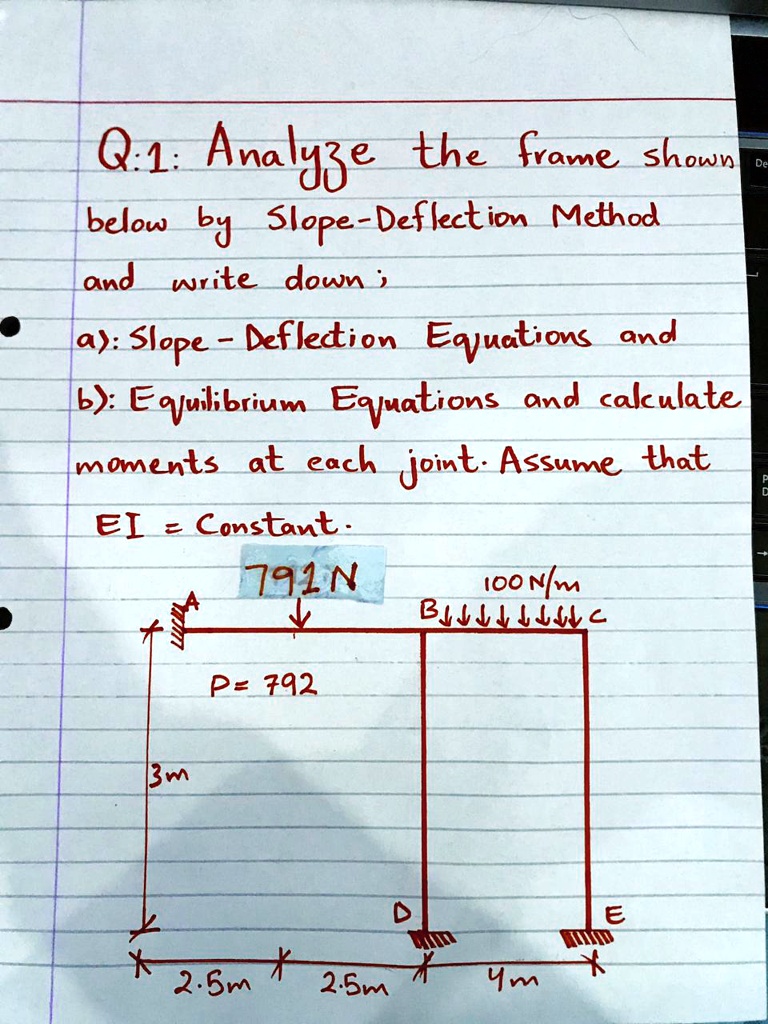 Q:1: Analyze the frame shown
below by Slope-Deflection Method
and write down;
a): Slope - Deflection Equations and
b): Equilibrium Equations and calculate
moments at each joint. Assume that
EI = Constant.
791N
100 N/m
A
B
C
P= 792
3m
D
E
2.5m
2.5m
4m
De
P
D